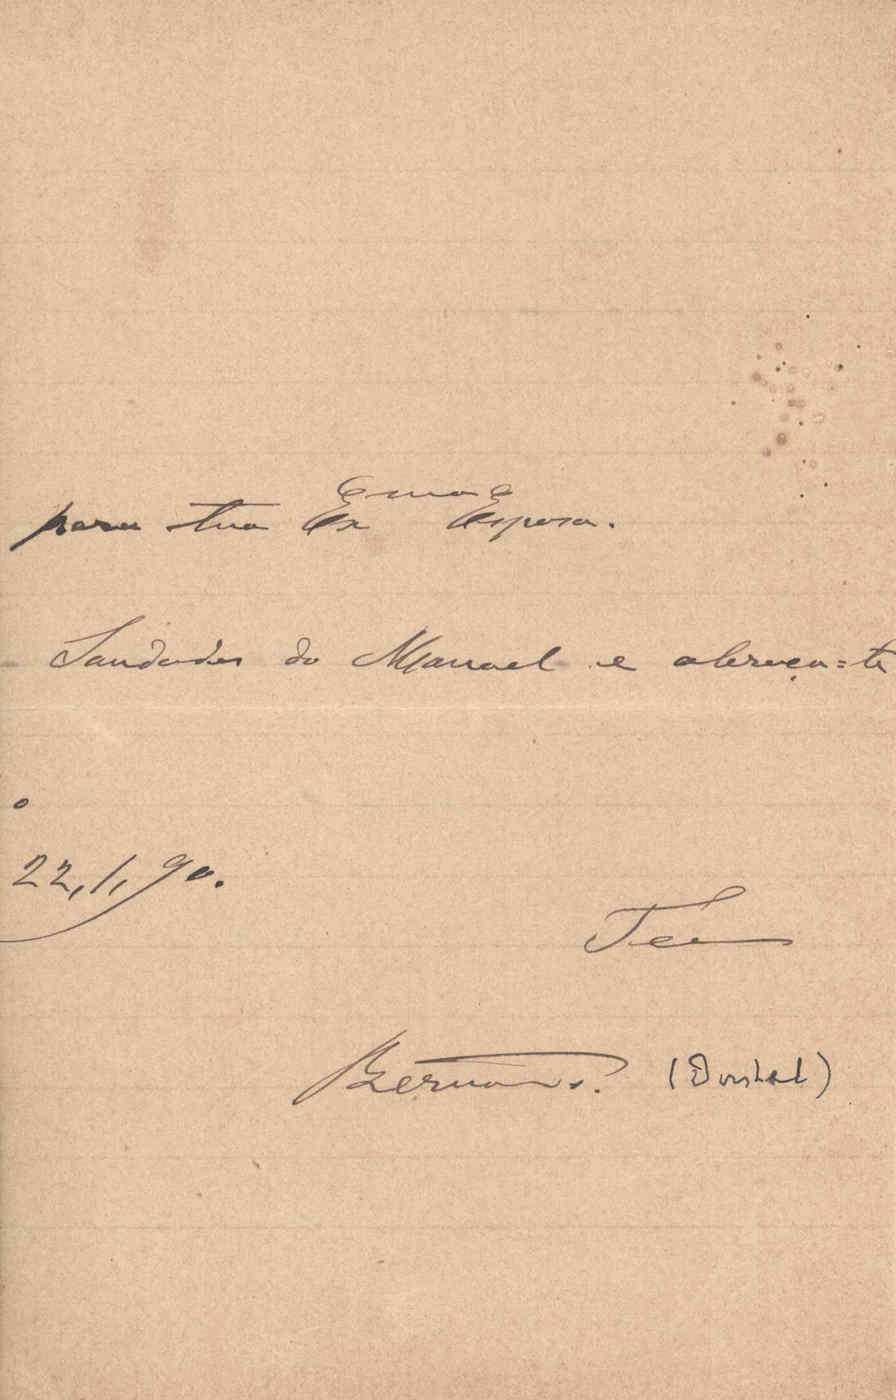 para tua Exma Esposa.
Saudades do Manoel e abraça-te
22, 1, 90.
Teu
Bernardo.